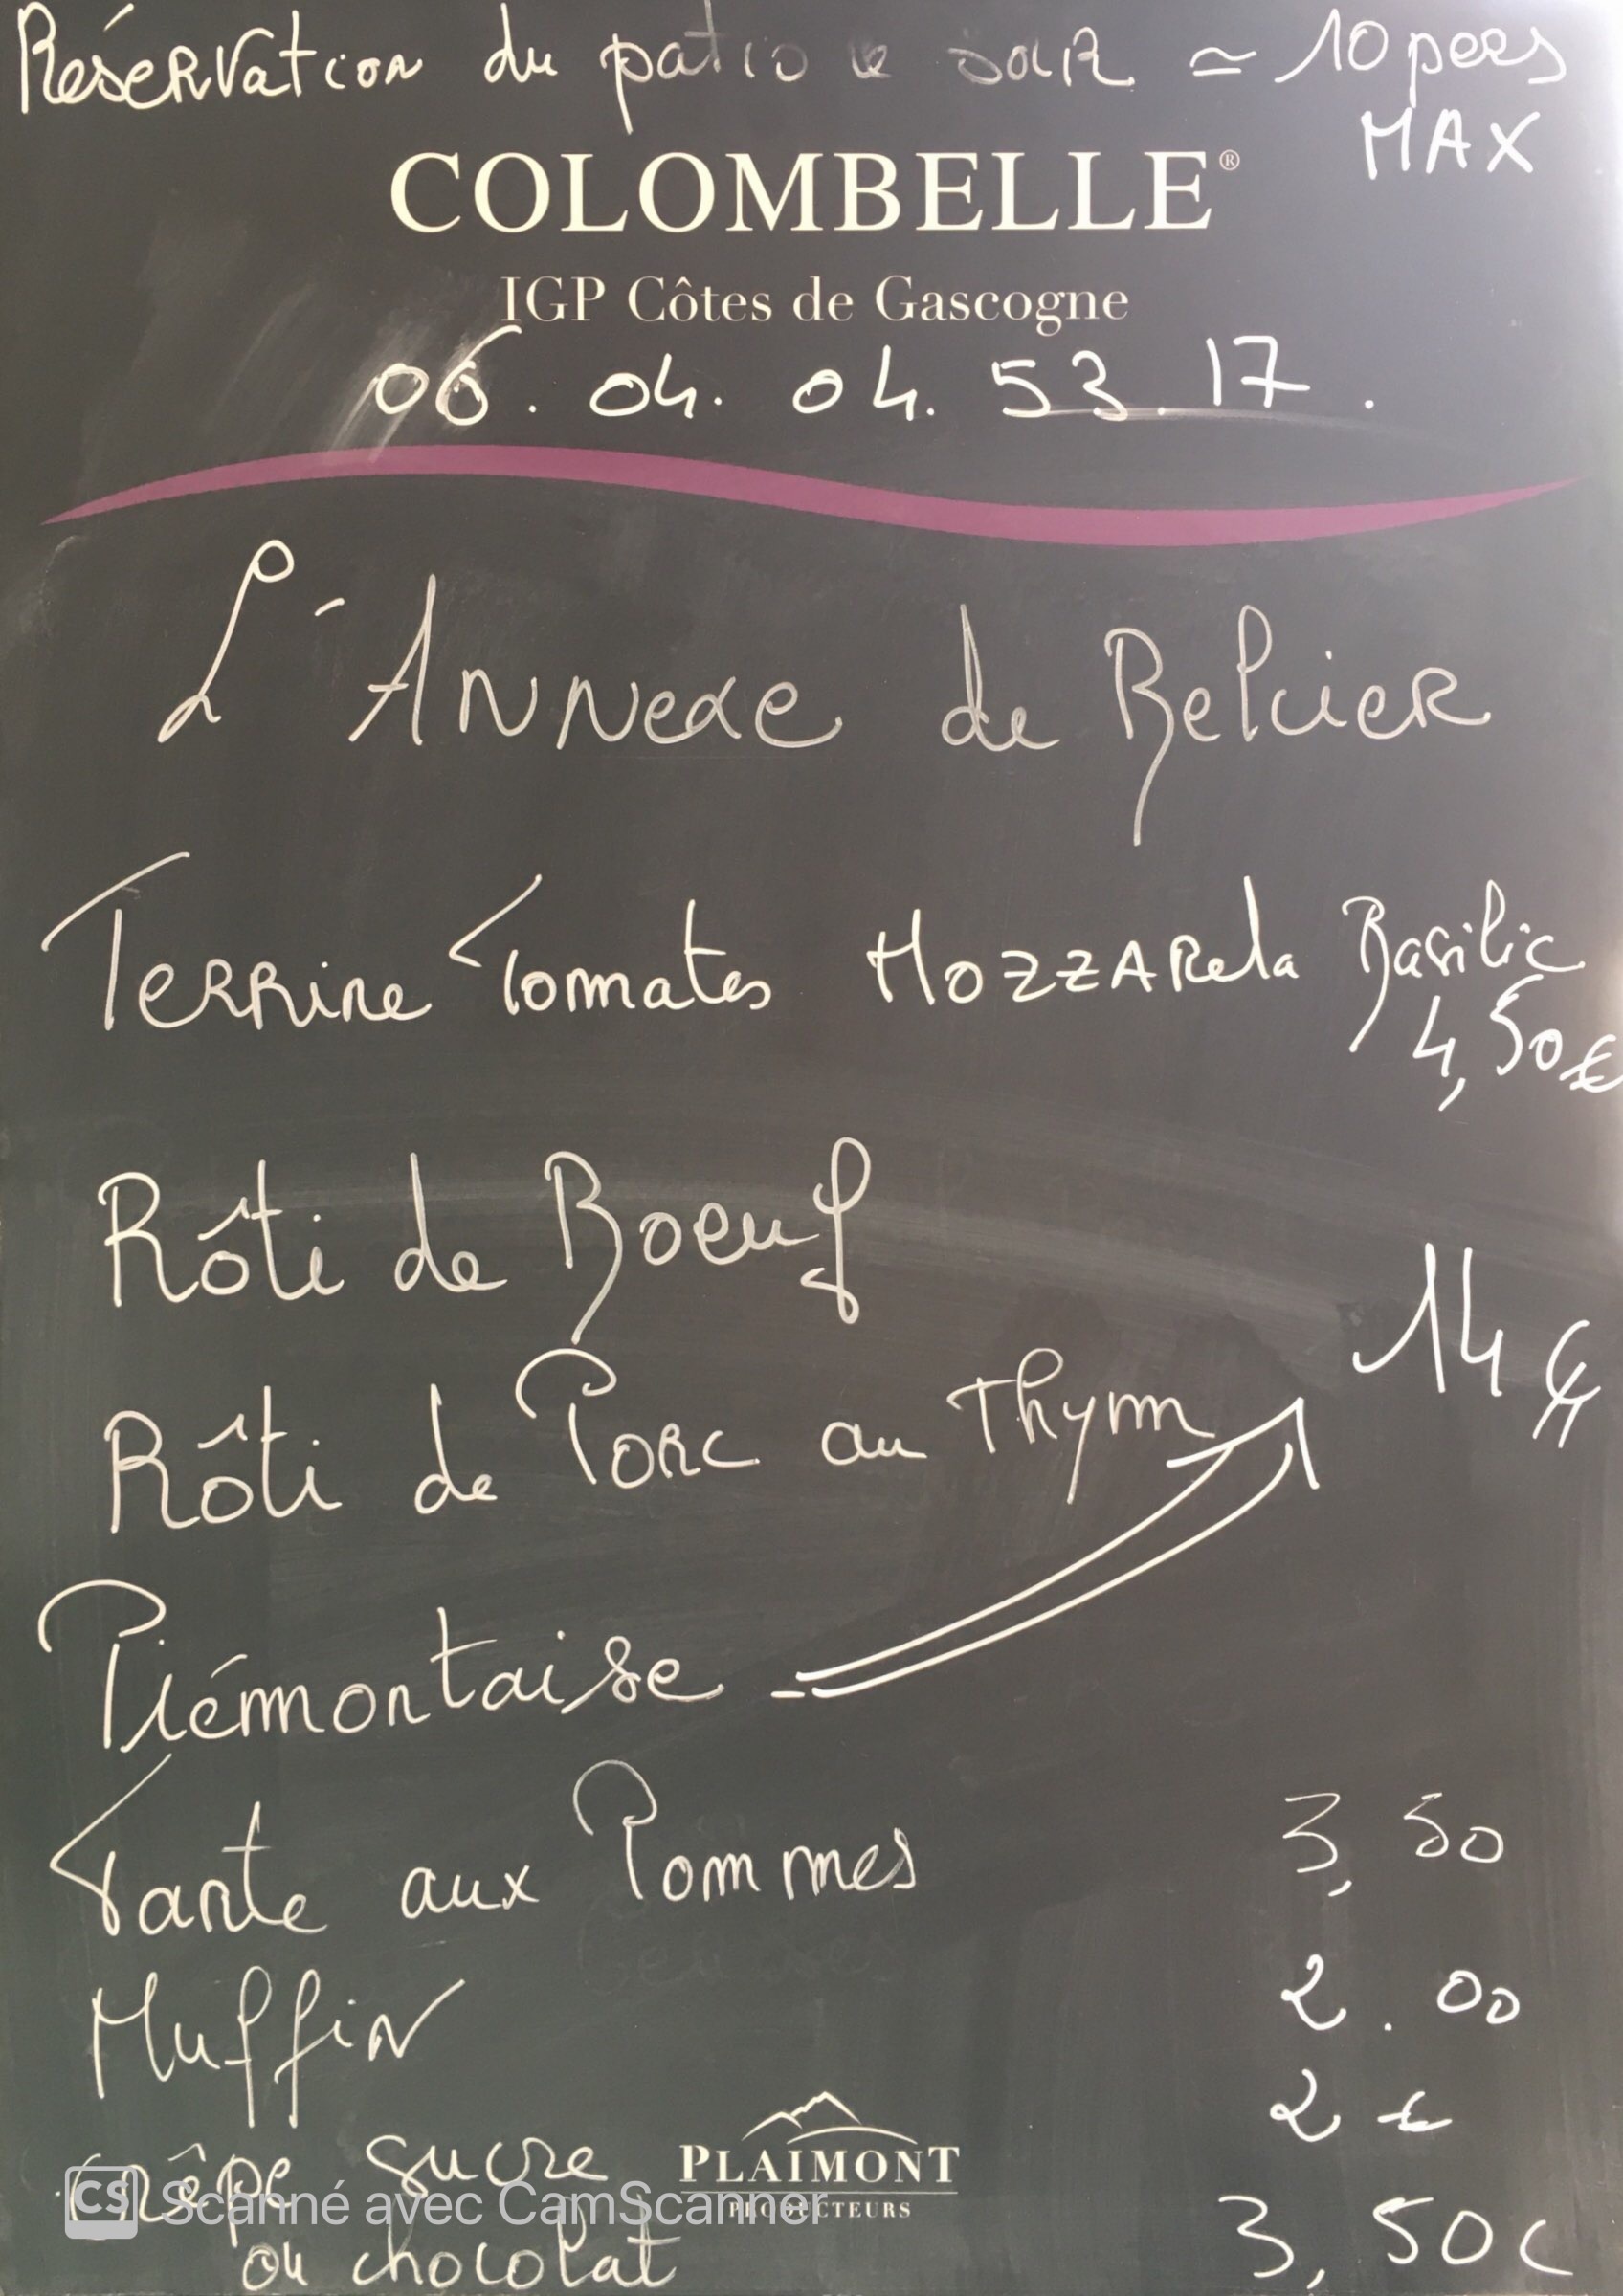 Réservation du patio le soir ≃ 10 pers
MAX
COLOMBELLE®
IGP Côtes de Gascogne
06. 04. 04. 53. 17.
L'Annexe de Belcier
Terrine Tomates Mozzarela Basilic
4,50€
Rôti de Boeuf
14€
Rôti de Porc au Thym
Piémontaise
Tarte aux Pommes 3,50
Muffin 2.00
Crêpe sucre 2€
ou chocolat 3,50€
PLAIMONT
PRODUCTEURS
CS Scanné avec CamScanner